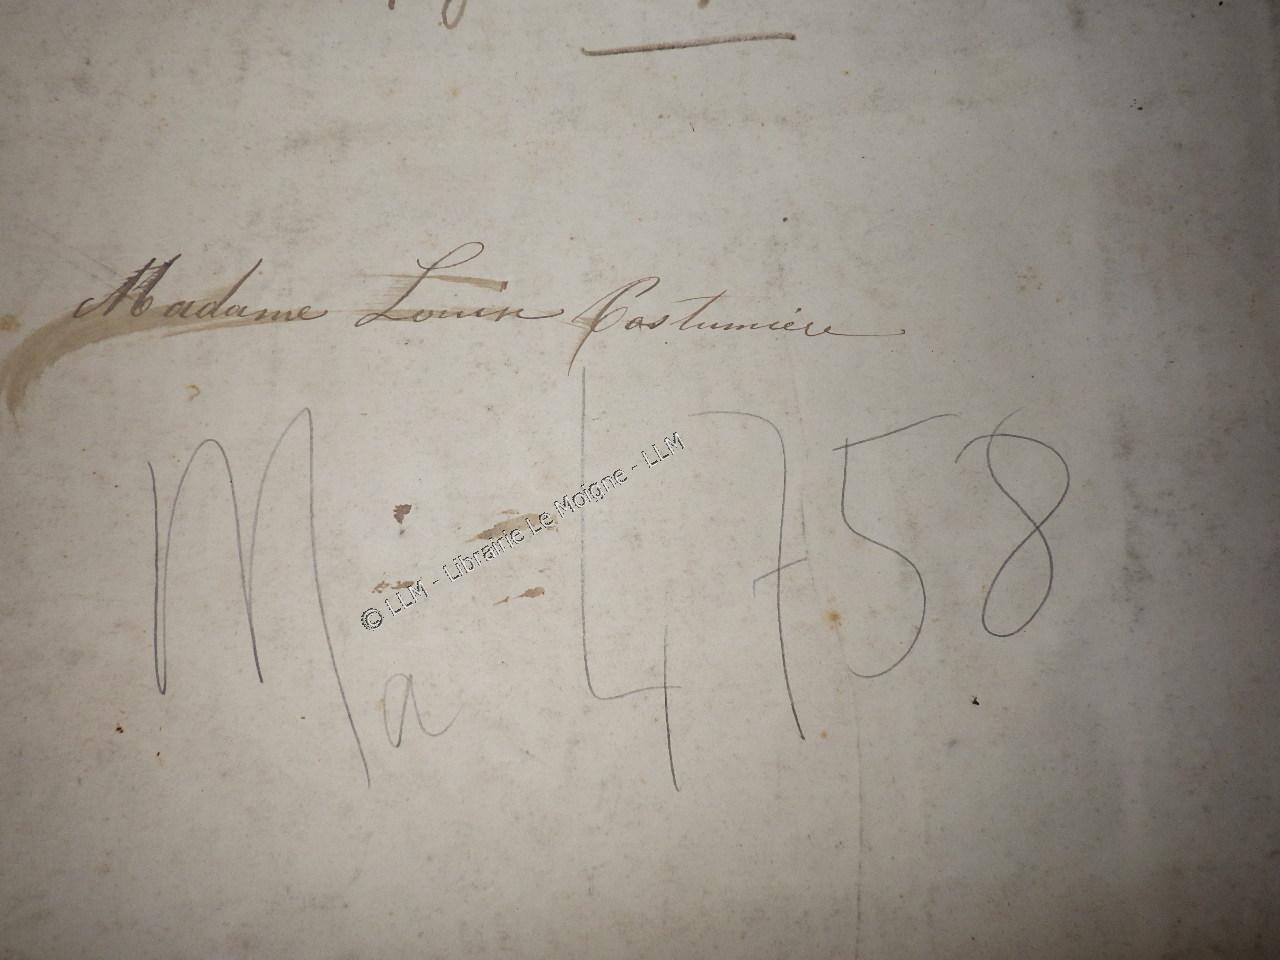 Madame Louise Costumière
Ma 4758
© LLM - Librairie Le Moigne - LLM